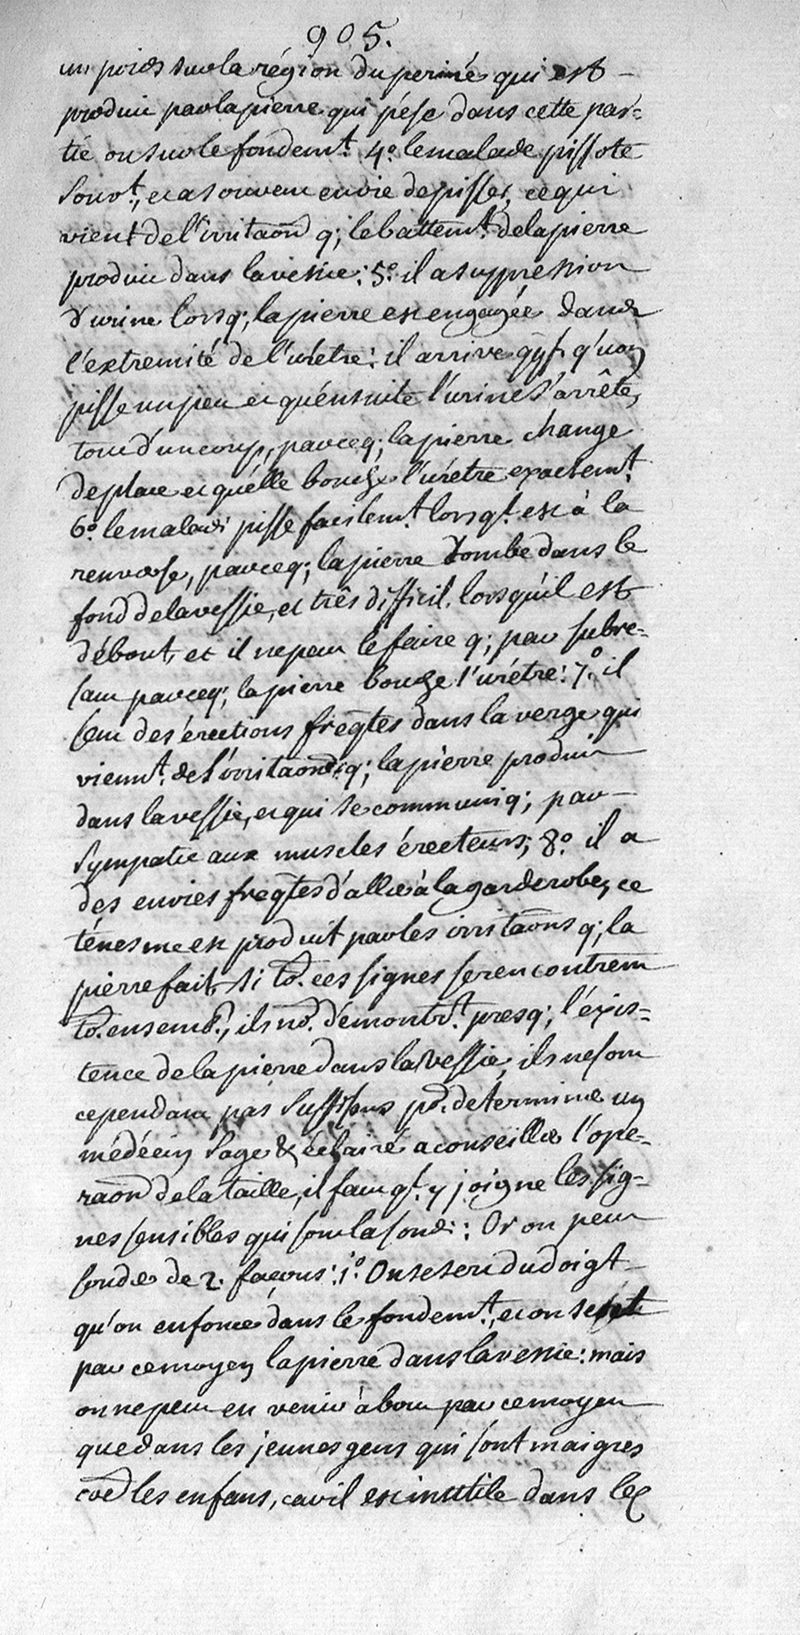 905.
un poids sur la région du periné qui est
produit par la pierre qui pése dans cette par=
tie ou sur le fondemt. 4o. le malade pissote
souvt., et a souvent envie de pisser, ce qui
vient de l'irritaōn q; le battemt. de la pierre
produit dans la vessie: 5o. il a suppression
d'urine lorsq; la pierre est engagée dans
l'extremité de l'urétre: il arrive qqf. qu'on
pisse un peu et qu'ensuite l'urine s'arrête,
tout d'un coup, parceq; la pierre change
de place et qu'elle bouche l'urétre exactemt.
6o. le malade pisse facilemt. lorsql. est à la
renverse, parceq; la pierre tombe dans le
fond de la vessie, et trés difficil. lorsqu'il est
débout, et il ne peut le faire q; par subre=
saut parceq; la pierre bouche l'urétre: 7o. il
sent des érections freqtes dans la verge qui
viennt. de l'irritaōn q; la pierre produit
dans la vessie, et qui se communiq; par
sympatie aux muscles érecteurs; 8o. il a
des envies freqtes d'aller à la garderobe, ce
ténesme est produit par les irritaōns q; la
pierre fait, si ts. ces signes se rencontrent
ts. ensemb., ils ns. démontrt. presq; l'éxis=
tence de la pierre dans la vessie, ils ne sont
cependant pas suffisans pr. determiner un
médécin sage & éclairé a conseiller l'ope=
raōn de la taille, il faut ql. y joigne les sig=
nes sensibles qui sont la sonde: Or on peut
sonder de 2. façons: 1o. On se sert du doigt
qu'on enfonce dans le fondemt., et on sent
par ce moyen la pierre dans la vessie: mais
on ne peut en venir à bout par ce moyen
que dans les jeunes gens qui sont maigres
coē les enfans, car il est inutile dans les